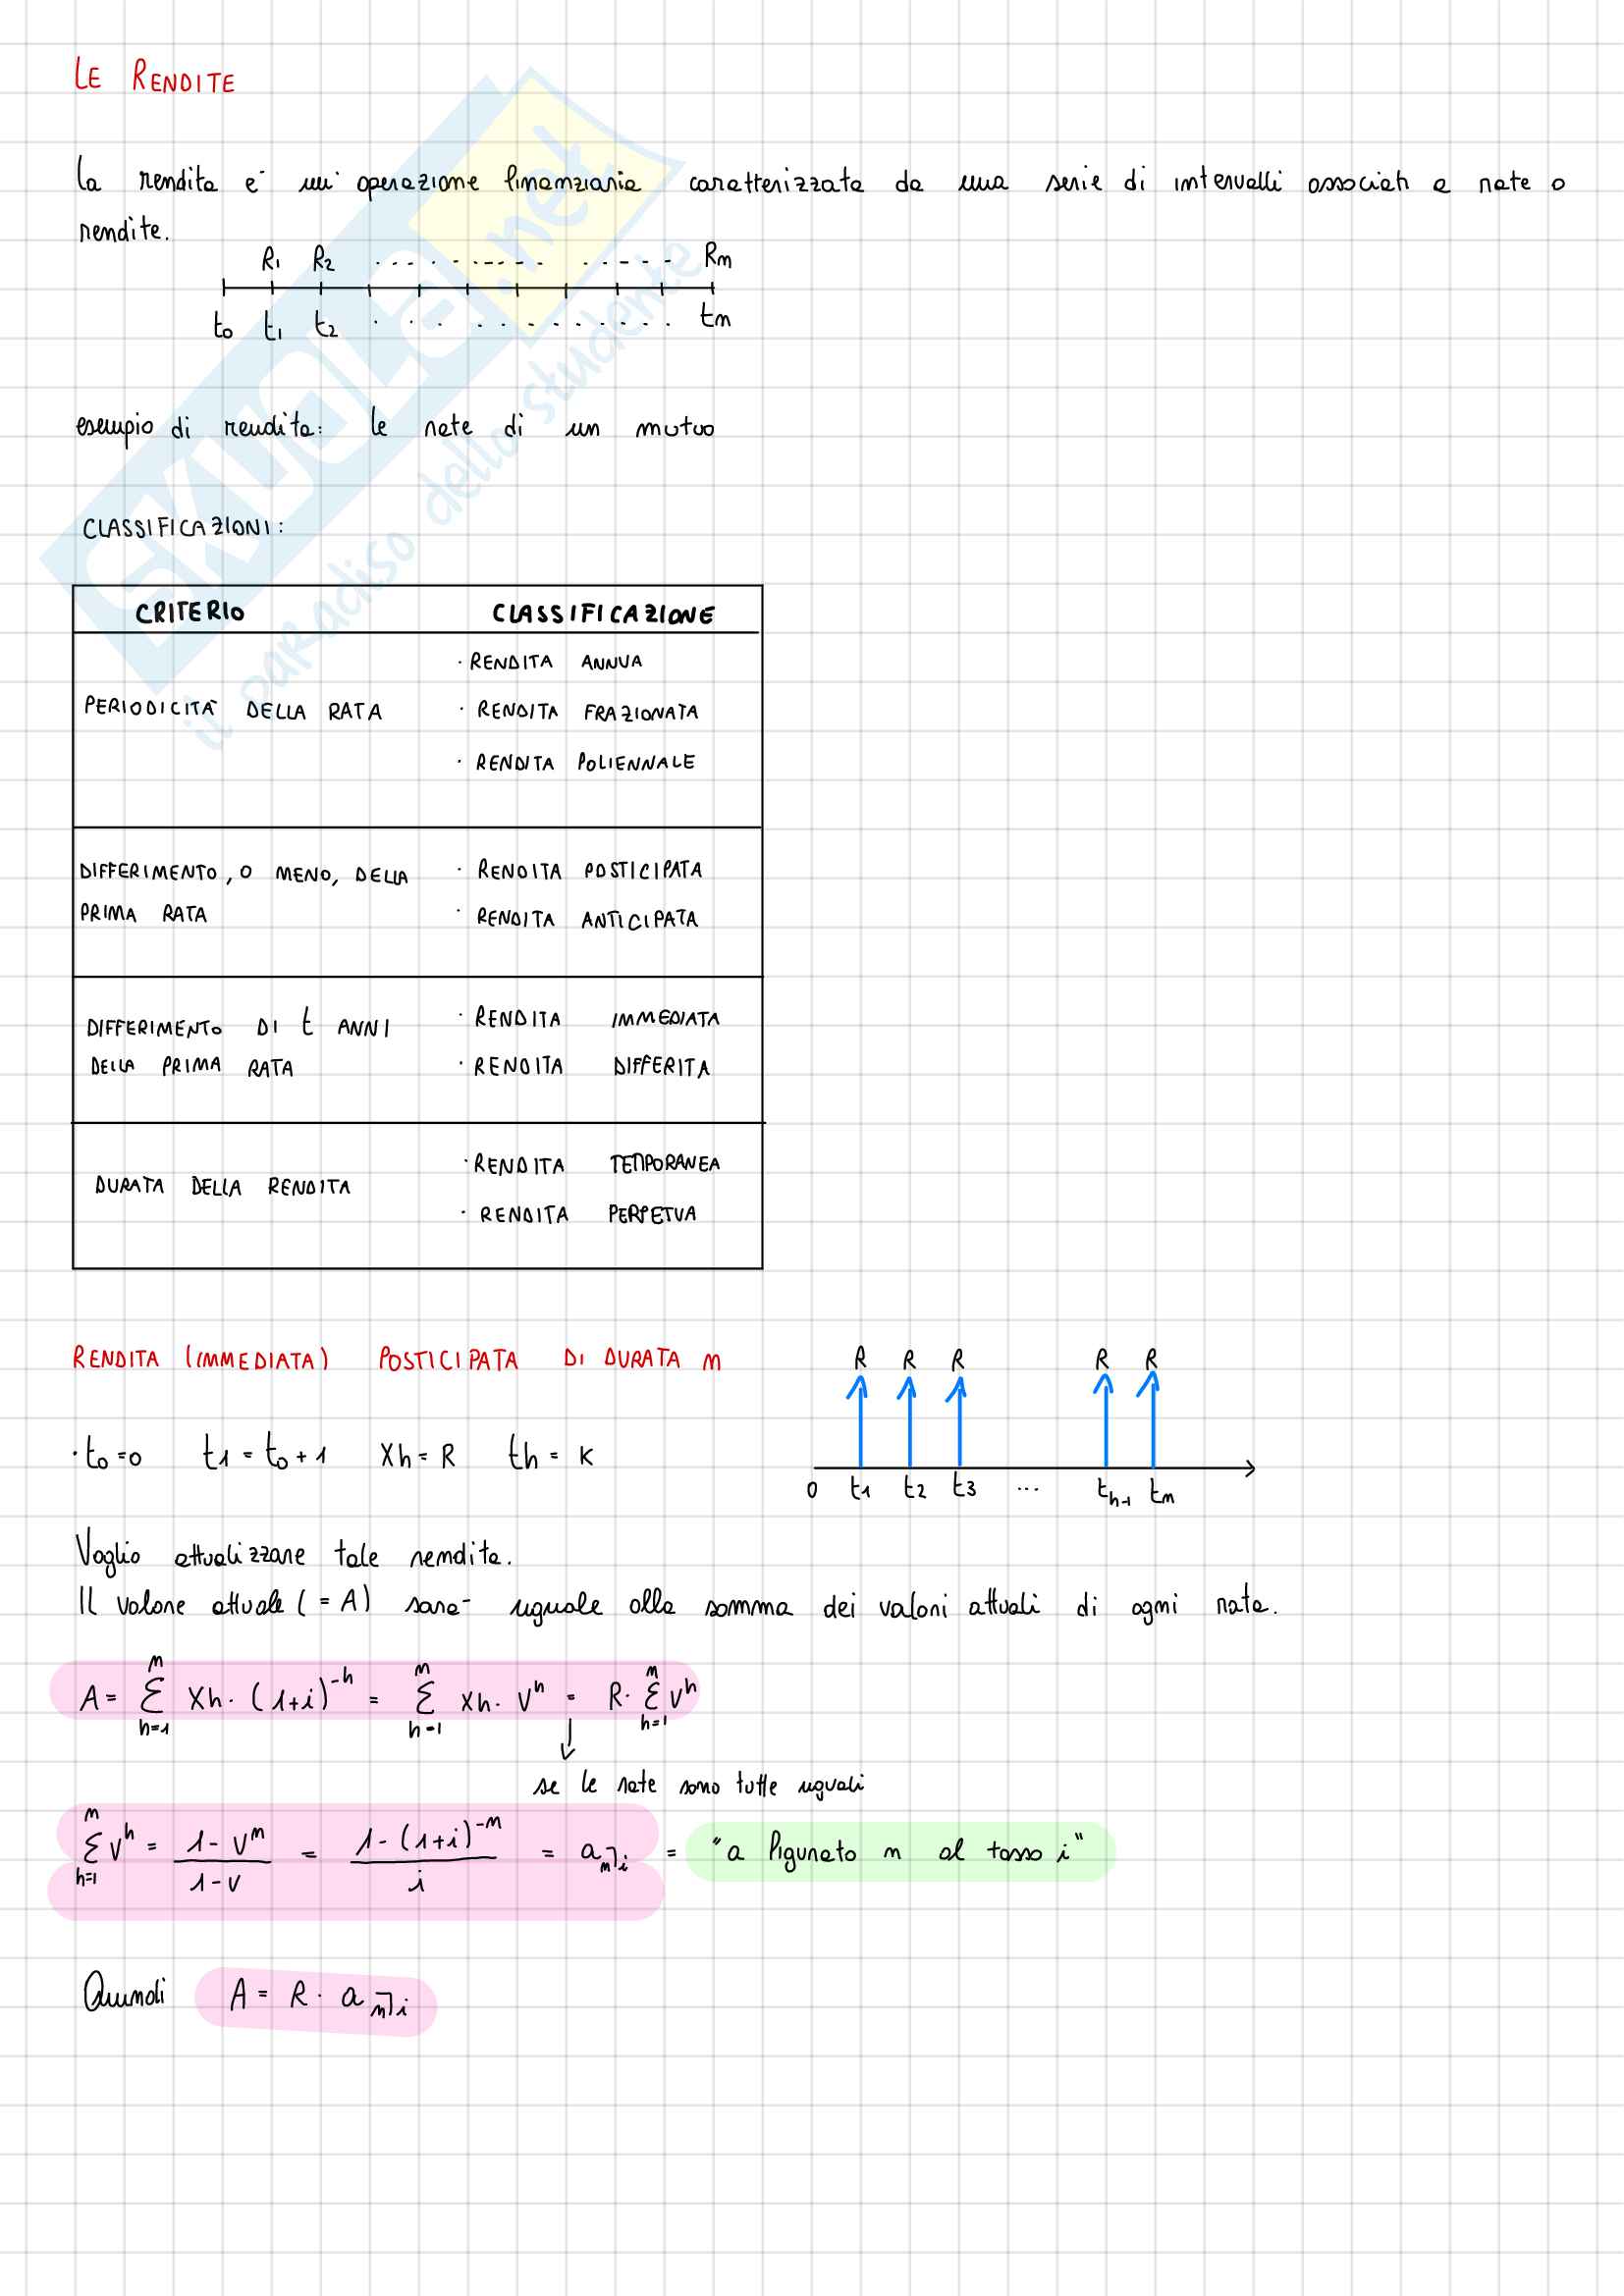 LE RENDITE
La rendita e' un' operazione finanziaria caratterizzata da una serie di intervalli associati a rate o
rendite.
R1 R2 ................ Rn
t0 t1 t2 ................ tn
esempio di rendita: le rate di un mutuo
CLASSIFICAZIONI:
CRITERIO CLASSIFICAZIONE
PERIODICITÀ DELLA RATA
· RENDITA ANNUA
· RENDITA FRAZIONATA
· RENDITA POLIENNALE
DIFFERIMENTO, O MENO, DELLA
PRIMA RATA
· RENDITA POSTICIPATA
· RENDITA ANTICIPATA
DIFFERIMENTO DI t ANNI
DELLA PRIMA RATA
· RENDITA IMMEDIATA
· RENDITA DIFFERITA
DURATA DELLA RENDITA
· RENDITA TEMPORANEA
· RENDITA PERPETUA
RENDITA (IMMEDIATA) POSTICIPATA DI DURATA n
R R R R R
0 t1 t2 t3 ... th-1 tn
· t0 = 0 t1 = t0 + 1 Xh = R th = K
Voglio attualizzare tale rendita.
Il valore attuale (= A) sara- uguale alla somma dei valori attuali di ogni rata.
A = Σ(h=1, n) Xh · (1+i)^-h = Σ(h=1, n) Xh · V^h = R · Σ(h=1, n) V^h
↓
se le rate sono tutte uguali
Σ(h=1, n) V^h = (1 - V^n)/(1 - V) = (1 - (1+i)^-n)/i = a n̅|i = "a figurato n al tasso i"
Quindi A = R · a n̅|i
SKUOLA.net
il paradiso dello studente